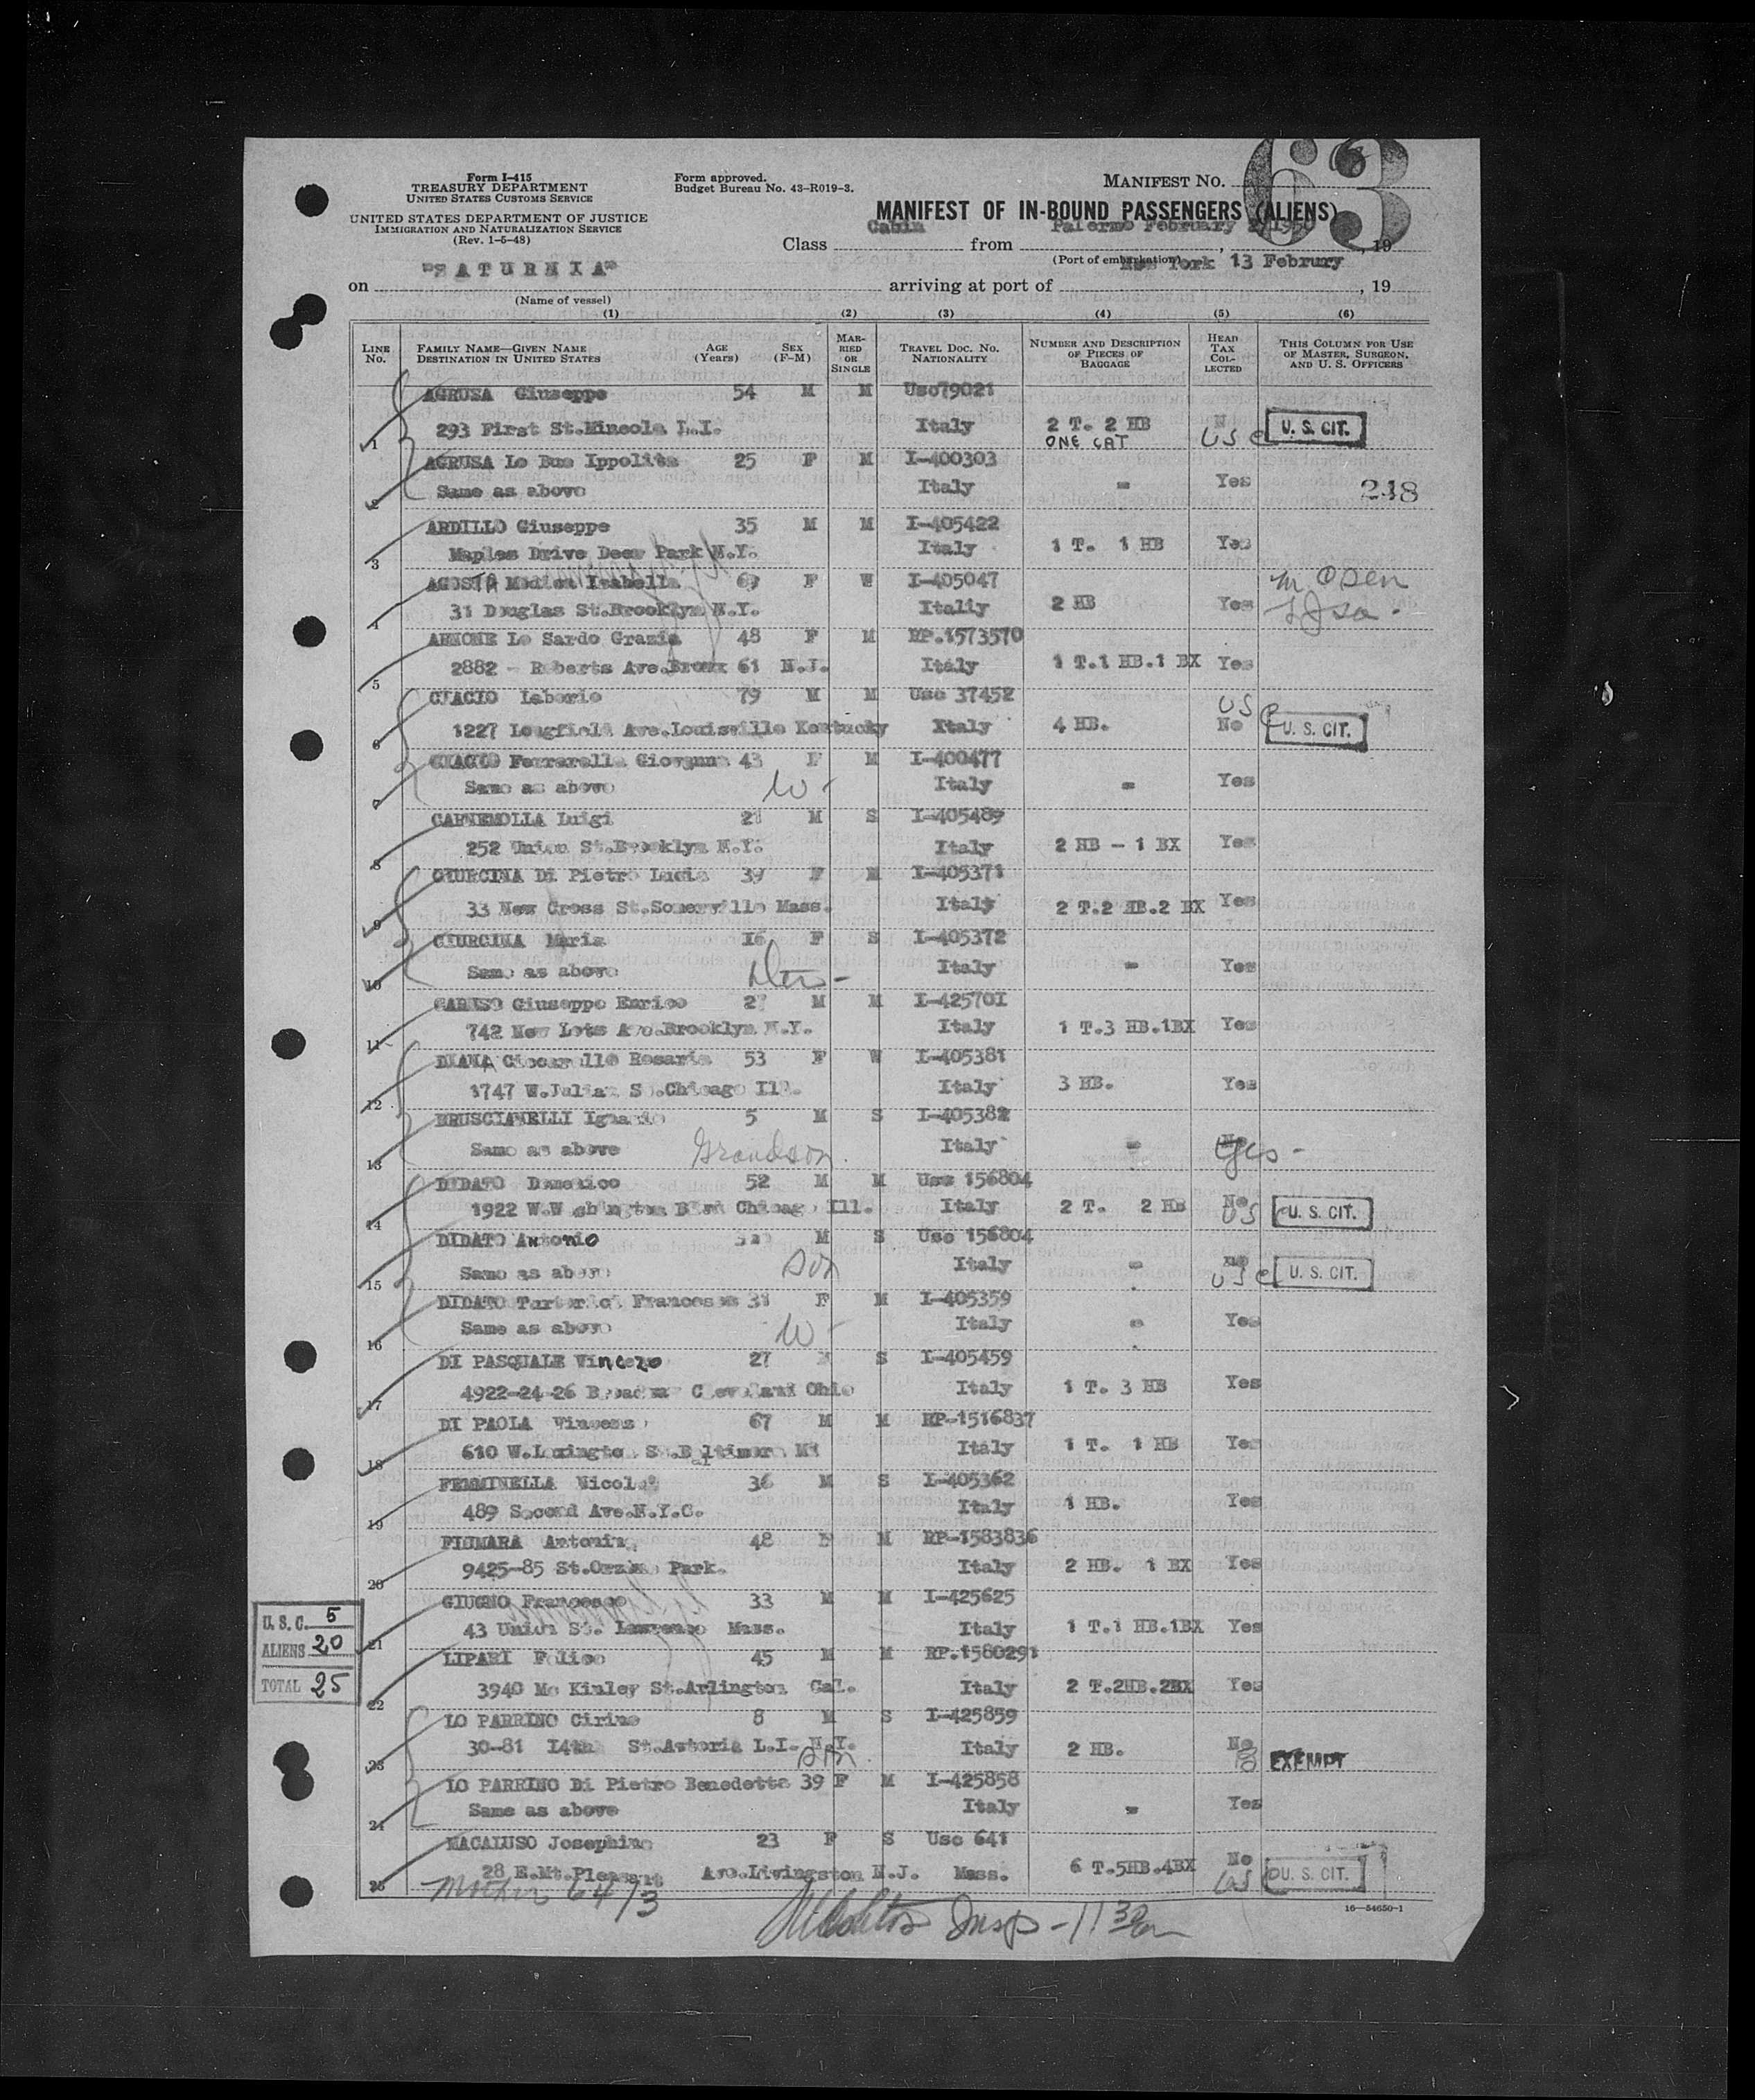 63
Form I-415
TREASURY DEPARTMENT
UNITED STATES CUSTOMS SERVICE
UNITED STATES DEPARTMENT OF JUSTICE
IMMIGRATION AND NATURALIZATION SERVICE
(Rev. 1-5-48)
Form approved.
Budget Bureau No. 43-R019-3.
MANIFEST NO.
MANIFEST OF IN-BOUND PASSENGERS (ALIENS)
Class Cabin from Palermo February 2/1950, 19
(Port of embarkation)
on "SATURNIA" arriving at port of New York 13 Februry, 19
(Name of vessel)
(1) (2) (3) (4) (5) (6)
LINE NO. FAMILY NAME—GIVEN NAME DESTINATION IN UNITED STATES AGE (Years) SEX (F-M) MARRIED OR SINGLE TRAVEL DOC. NO. NATIONALITY NUMBER AND DESCRIPTION OF PIECES OF BAGGAGE HEAD TAX COLLECTED THIS COLUMN FOR USE OF MASTER, SURGEON, AND U. S. OFFICERS
AGRUSA Giuseppe 54 M M Usc79021
1 293 First St.Mineola L.I. Italy 2 T. 2 HB N USC U. S. CIT.
ONE CAT
AGRUSA Lo Bue Ippolita 25 F M I-400303
2 Same as above Italy = Yes 248
ARDILLO Giuseppe 35 M M I-405422
3 Maples Drive Deer Park N.Y. Italy 1 T. 1 HB Yes
AGOSTA Modica Isabella F W I-405047
4 31 Douglas St.Brooklyn N.Y. Italiy 2 HB Yes
ARNONE Lo Sardo Grazia 48 F M RP.1573570
5 2882 - Roberts Ave.Bronx 61 N.J. Italy 1 T.1 HB.1 BX Yes
CIACIO Laborio 79 M M Usc 37452
6 1227 Longfield Ave.Louisville Kentucky Italy 4 HB. No USC U. S. CIT.
CIACIO Ferrarella Giovanna 43 F M I-400477
7 Same as above W- Italy = Yes
CARNEMOLLA Luigi 21 M S I-405489
8 252 Union St.Brooklyn N.Y. Italy 2 HB - 1 BX Yes
GIURCINA Di Pietro Lucia 39 F M I-405371
9 33 New Cross St.Somerville Mass. Italy 2 T.2 HB.2 BX Yes
GIURCINA Maria 16 F S I-405372
10 Same as above Dter- Italy = Yes
CARUSO Giuseppe Enrico M M I-425701
11 742 New Lots Ave.Brooklyn N.Y. Italy 1 T.3 HB.1BX Yes
DIANA Ciccarello Rosaria 53 F W I-405381
12 1747 W.Julian St.Chicago Ill. Italy 3 HB. Yes
BRUSCIANELLI Ignazio 5 M S I-405382
13 Same as above Grandson. Italy = Yes -
DIDATO Domenico 52 M M Usc 156804
14 1922 W.Washington Blvd Chicago Ill. Italy 2 T. 2 HB No USC U. S. CIT.
DIDATO Antonio M S Usc 156804
15 Same as above Son Italy = No USC U. S. CIT.
DIDATO Francesca 31 F M I-405359
16 Same as above W- Italy = Yes
DI PASQUALE Vincenzo 27 M S I-405459
17 4922-24-26 Broadway Cleveland Ohio Italy 1 T. 3 HB Yes
DI PAOLA Vincenzo 67 M M RP-1516837
18 610 W.Lexington St.Baltimore Md Italy 1 T. 1 HB Yes
FEMMINELLA Nicolo 36 M S I-405362
19 489 Second Ave.N.Y.C. Italy 1 HB. Yes
FIUMARA Antonina 48 F M RP-1583836
20 9425-85 St.Ozone Park. Italy 2 HB. 1 BX Yes
GIUGNO Francesco 33 M M I-425625
21 43 Union St. Lawrence Mass. Italy 1 T.1 HB.1BX Yes
LIPARI Felice 45 M M RP.1580291
22 3940 Mc Kinley St.Arlington Cal. Italy 2 T.2HB.2BX Yes
LO PARRINO Cirino 8 M S I-425859
23 30-81 14th St.Astoria L.I. N.Y. Son. Italy 2 HB. No EXEMPT
LO PARRINO Di Pietro Benedetta 39 F M I-425858
24 Same as above Italy = Yes
MACALUSO Josephine 23 F S Usc 641
25 28 E.Mt.Pleasant Ave.Livingston N.J. Mass. 6 T.5HB.4BX No USC U. S. CIT.
U. S. C. 5
ALIENS 20
TOTAL 25
Mother 64/3
Insp - 11 30 am
16—54650-1